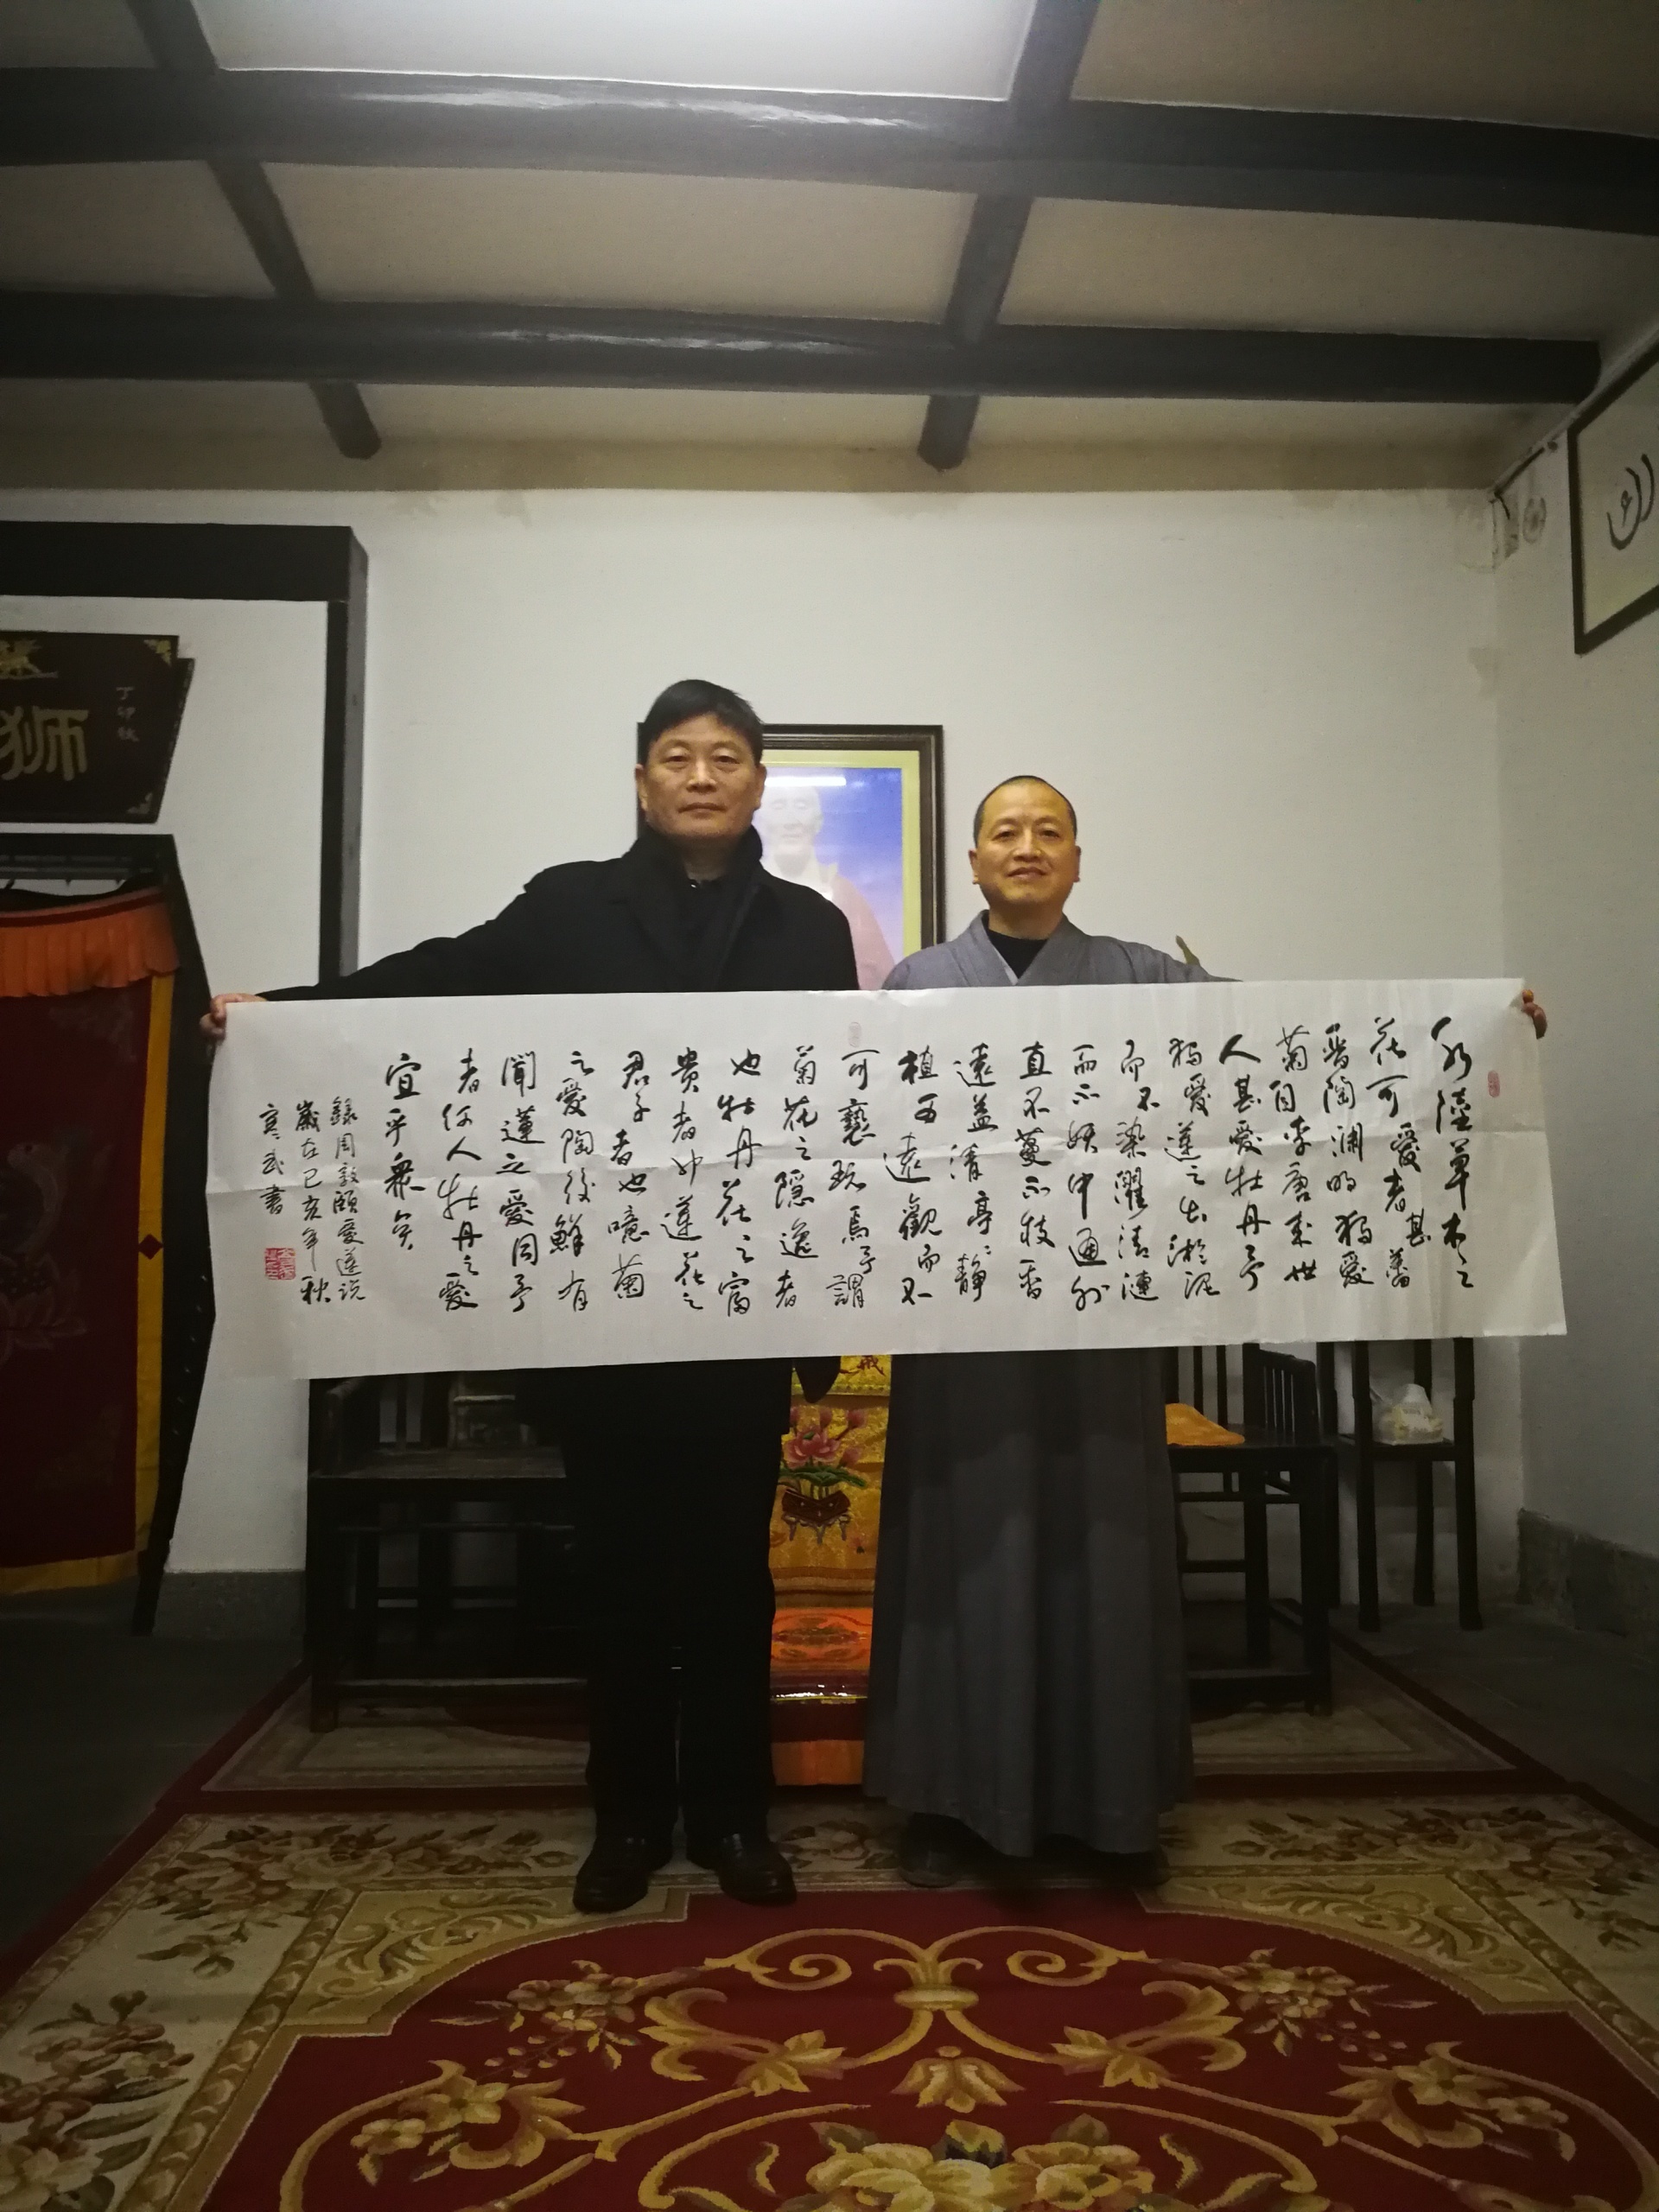 水陸草木之
花可愛者甚蕃
晋陶渊明独爱
菊自李唐来世
人甚愛牡丹予
独愛蓮之出淤泥
而不染濯清漣
而不妖中通外
直不蔓不枝香
遠益清亭亭静
植可遠觀而不
可褻玩焉予謂
菊花之隱逸者
也牡丹花之富
貴者也蓮花之
君子者也噫菊
之愛陶後鮮有
聞蓮之愛同予
者何人牡丹之愛
宜乎衆矣
録周敦頤愛蓮説
歲在己亥年秋
寒武書
狮
丁卯秋